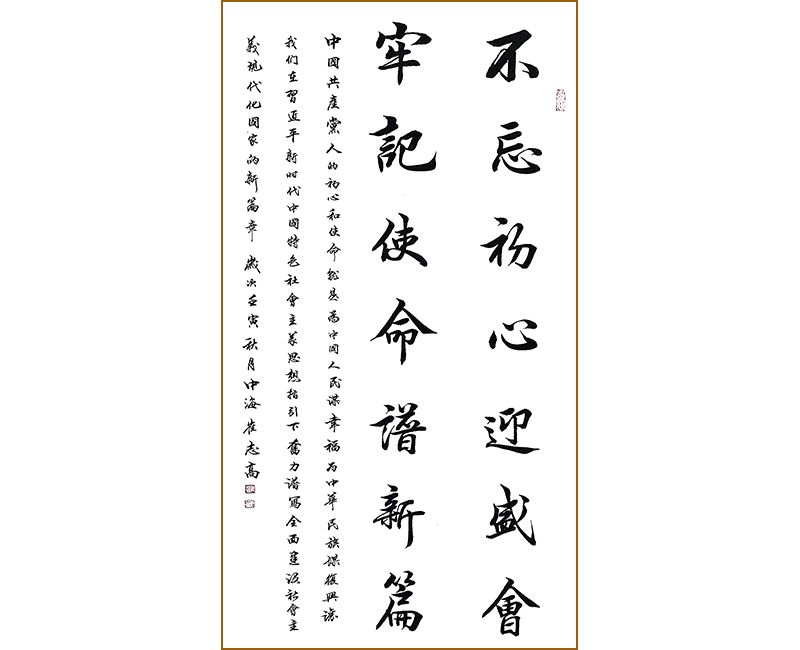 不忘初心迎盛會
牢記使命譜新篇
中國共產黨人的初心和使命就是為中國人民謀幸福为中華民族謀復興讓
我们在習近平新时代中國特色社會主義思想指引下奮力譜寫全面建設社會主
義現代化國家的新篇章 歲次壬寅秋月中海崔志高